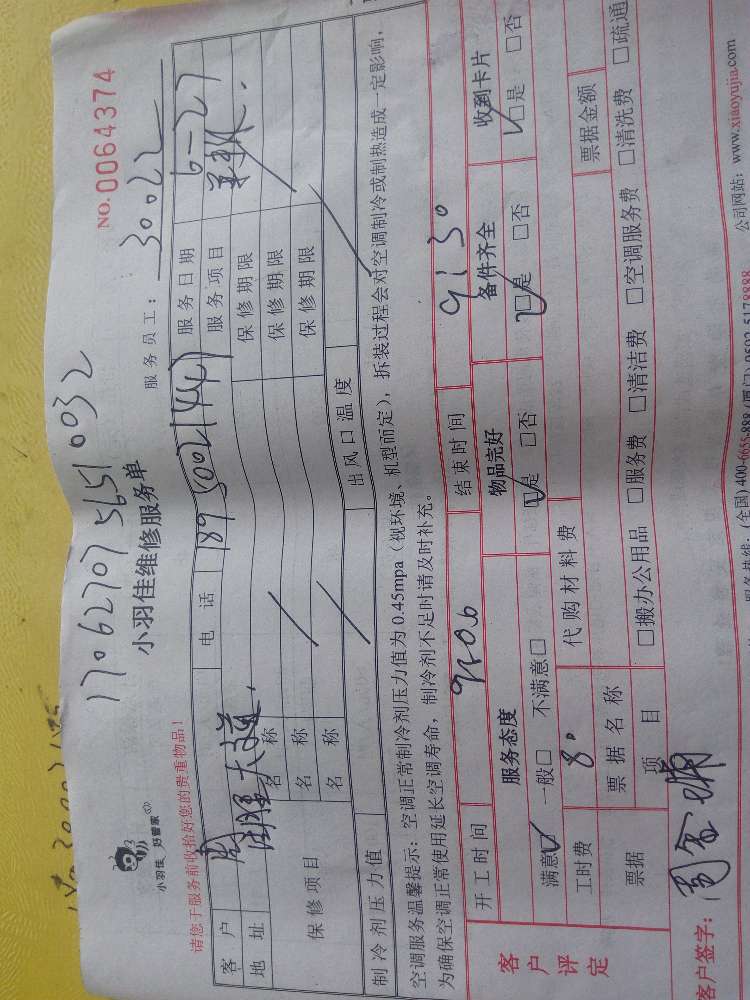 NO.0064374
17062707 5651 0032
小羽佳 好管家
小羽佳维修服务单
服务员工: 30022
请您于服务前收拾好您的贵重物品!
客户 周 电话 服务日期 6-27
地址 服务项目
保修项目 名称 保修期限
名称 保修期限
名称 保修期限
制冷剂压力值 出风口温度
空调服务温馨提示: 空调正常制冷剂压力值为 0.45mpa (视环境、机型而定), 拆装过程会对空调制冷或制热造成一定影响,
为确保空调正常使用延长空调寿命, 制冷剂不足时请及时补充。
客户评定
开工时间 结束时间 9:30
服务态度 物品完好 备件齐全 收到卡片
满意□ 一般□ 不满意□ □是 □否 □是 □否 □是 □否
工时费 80 代购材料费
票据 票据名称 票据金额
项目 □搬办公用品 □服务费 □清洁费 □空调服务费 □清洗费 □疏通
客户签字:
(全国) 400-6655-888 (厦门) 0592-5178888 公司网站: www.xiaoyujia.com